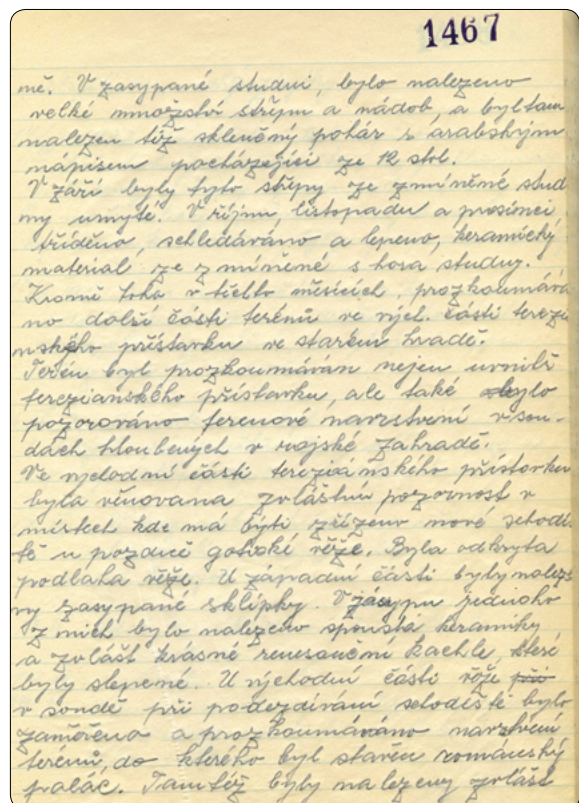 1467
mě. V zasypané studni, bylo nalezeno
velké množství střepů a nádob, a byl tam
nalezen též skleněný pohár s arabským
nápisem pocházející ze 12 stol.
V září byly tyto střepy ze zmíněné stud
ny umyté. V říjnu, listopadu a prosinci
tříděno, sehledáváno a lepeno, keramický
material ze zmíněné s hora studny.
Kromě toho v těchto měsících, prozkoumává
no další části terénů ve vých. části terezi
nského přístavku ve starém hradě.
Terén byl prozkoumáván nejen uvnitř
tereziánského přístavku, ale také bylo
pozorováno terenové navrstvení v son-
dách hloubených v rajské zahradě.
Ve východní části tereziánského přístavku
byla věnovana zvláštní pozornost v
místech kde má býti zřízeno nové schodi
tě u pozdně gotické věže. Byla odkryta
podlaha věže. U západní části byly naleze
ny zasypané sklípky. V zásypu jednoho
z nich bylo nalezeno spousta keramiky
a zvlášt krásné renesanční kachle, které
byly slepené. U východní části věže při
v sondě při podezdívání schodiště bylo
zaměřeno a prozkoumáváno navrstvení
terénů, do kterého byl stavěn románský
palác. Tamtéž byly nalezeny zvlášt